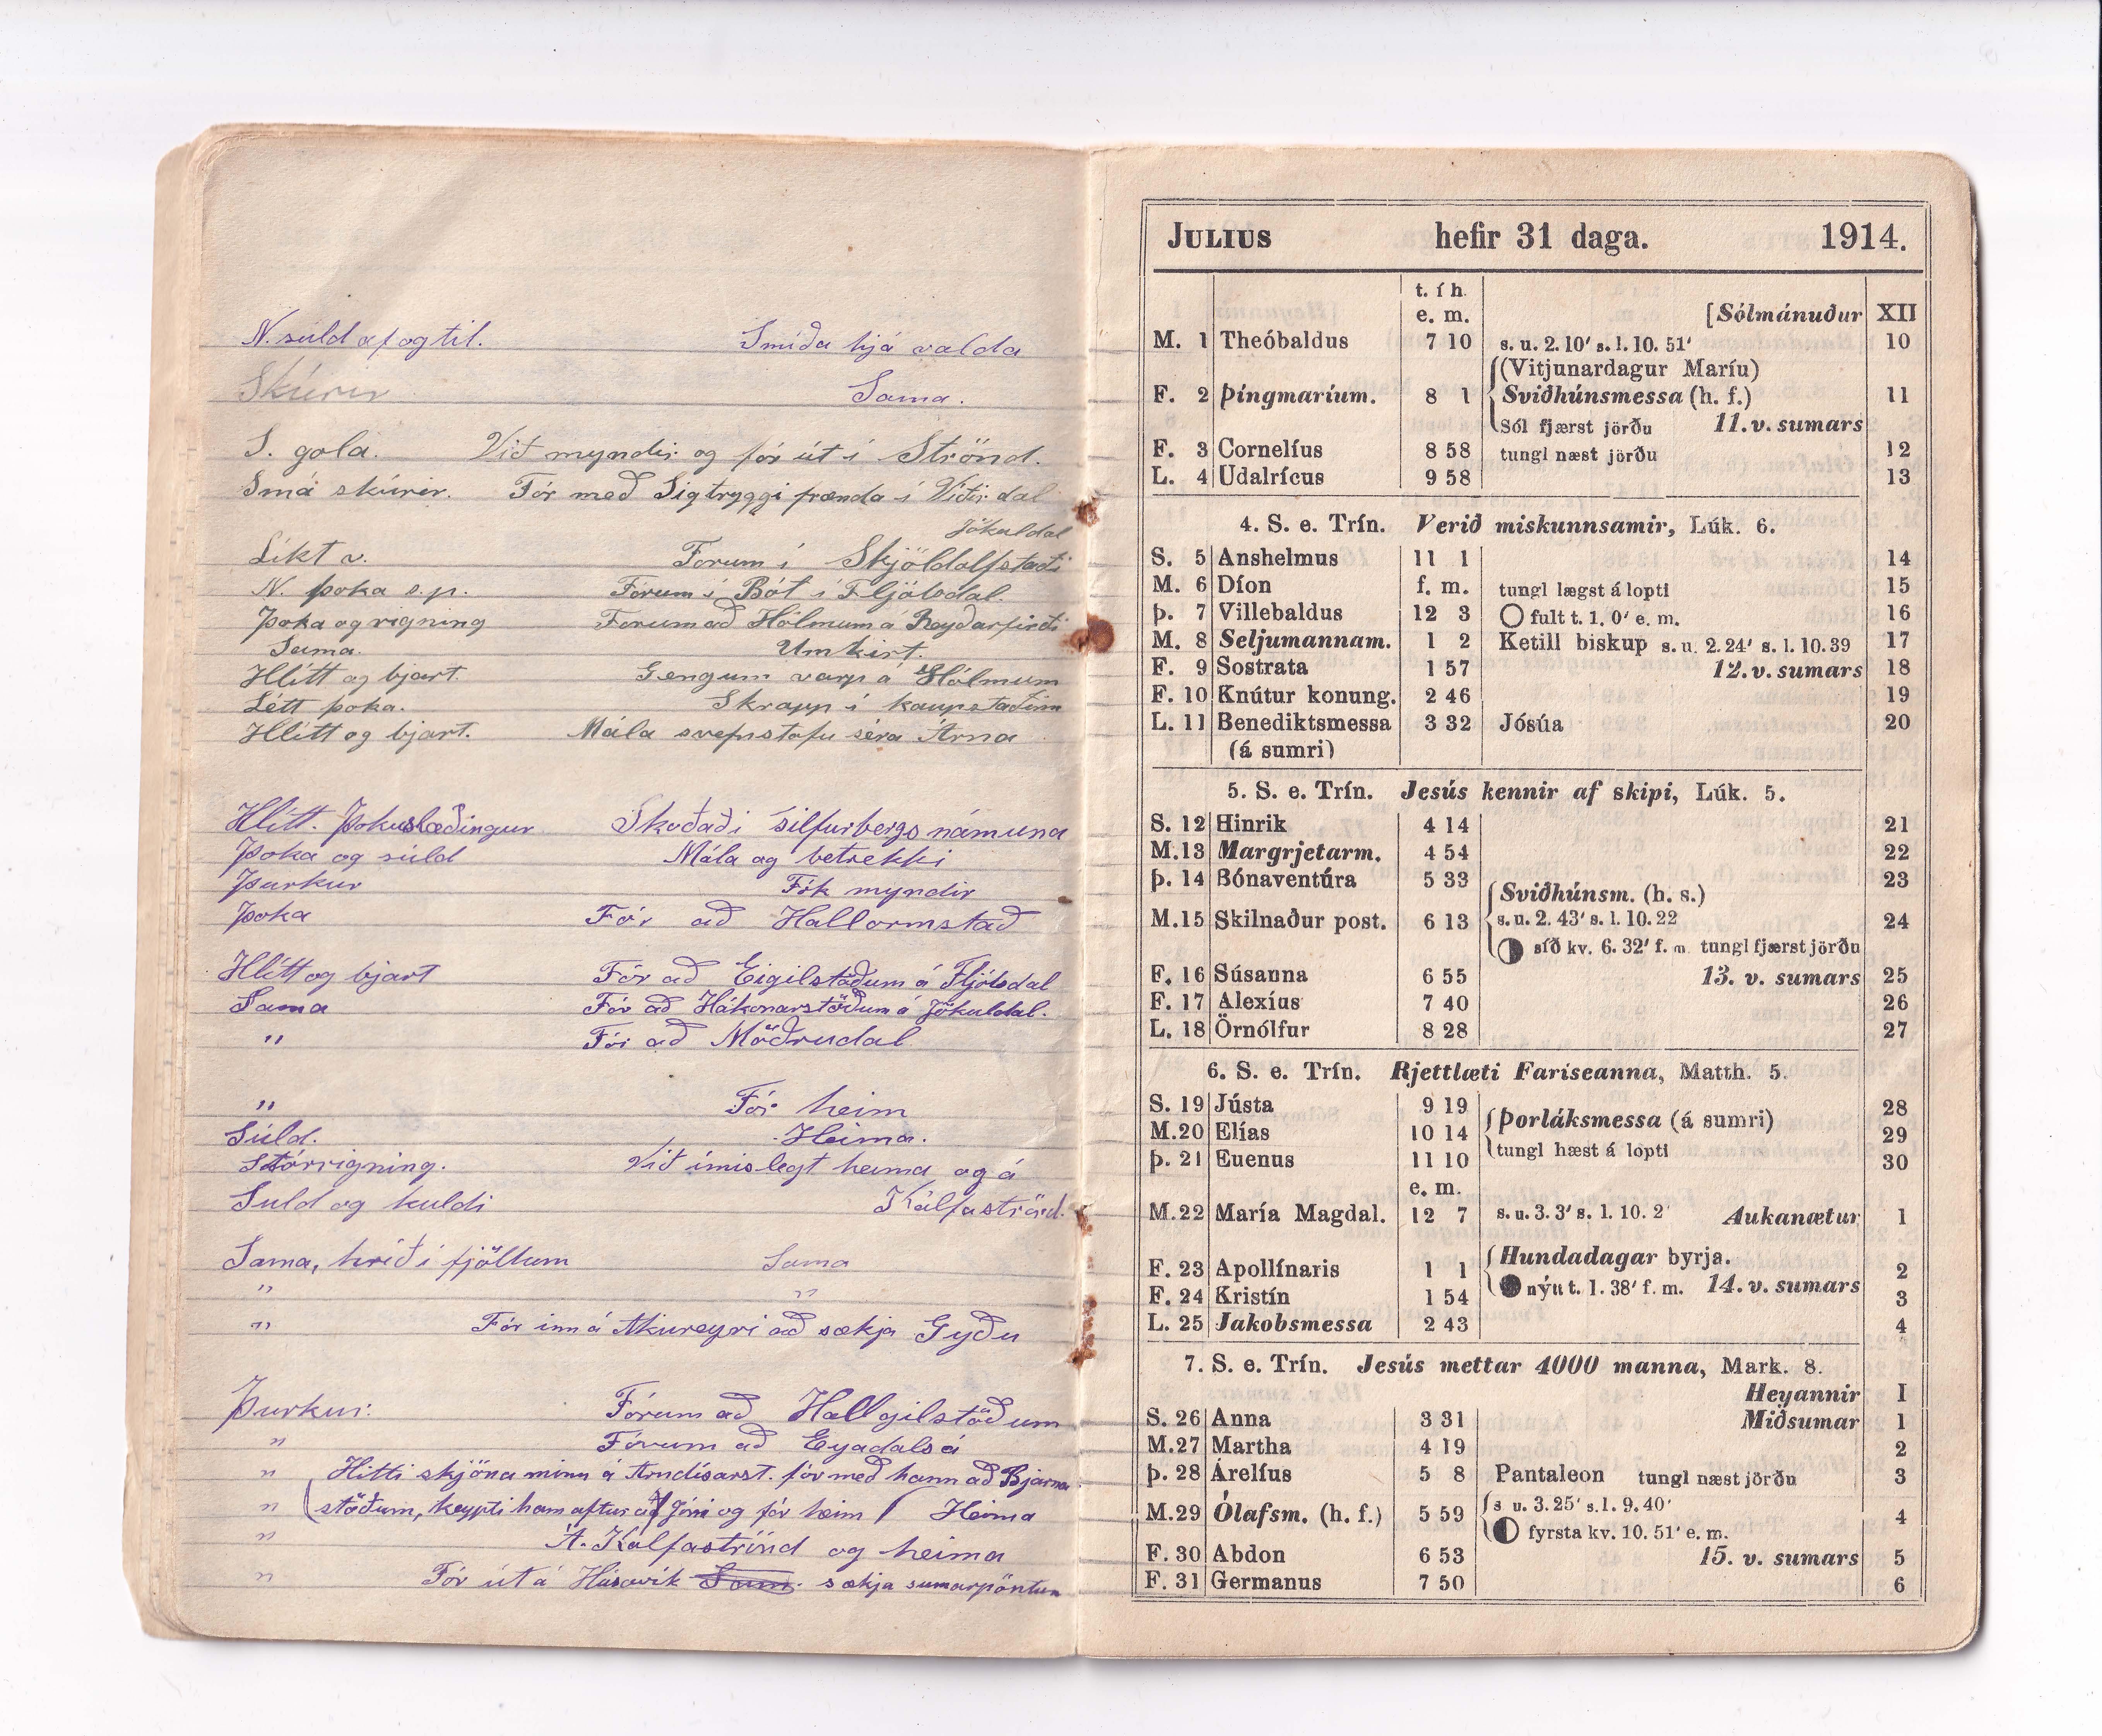 N. súld af og til. Smíða hjá valda
Skúrir Sama.
S. gola. Við myndir og fór út í Strönd.
Smá skúrir. Fór með Sigtryggi frænda í Víðirdal
Jökuldal
Líkt v. Fórum í Skjöldólfstaði
N. þoka s.p. Fórum í Bót í Fljótsdal.
Þoka og rigning Fórum að Hólmum á Reyðarfirði
Sama. Um kirt.
Hlítt og bjart. Gengum varp á Hólmum
Létt þoka. Skrapp í kaupstaðinn
Hlítt og bjart. Mála svefnstofu séra Árna
Hlítt. Þokuslæðingur Skoðaði silfurbergs námuna
Þoka og súld Mála og betrekki
Þurkur Tók myndir
Þoka Fór að Hallormstað
Hlítt og bjart Fór að Eigilstöðum á Fljótsdal
Sama Fór að Hákonarstöðum á Jökuldal.
" Fór að Möðrudal
" Fór heim
Súld. Heima.
Stórrigning. Við ímislegt heima og á
Suld og kuldi Kálfaströnd.
Sama, hríð í fjöllum Sama
" "
" Fór inn á Akureyri að sækja Gyðu
Þurkur. Fórum að Hallgilstöðum
" Fórum að Eyadalsá
" Hitti skjóna minn á Arndísarst. fór með hann að Bjarna
" (stöðum, keypti ham aftur af Jóni og fór heim / Heima
" Á Kálfaströnd og heima
" Fór út á Húsavík sækja sumarpöntun
JULIUS hefir 31 daga. 1914.
t. í h.
e. m. [Sólmánuður XII
M. 1 Theóbaldus 7 10 s. u. 2. 10' s. l. 10. 51' 10
(Vitjunardagur Maríu)
F. 2 Þingmaríum. 8 1 Sviðhúnsmessa (h. f.) 11
Sól fjærst jörðu 11. v. sumars
F. 3 Cornelíus 8 58 tungl næst jörðu 12
L. 4 Udalrícus 9 58 13
4. S. e. Trín. Verið miskunnsamir, Lúk. 6.
S. 5 Anshelmus 11 1 14
M. 6 Díon f. m. tungl lægst á lopti 15
Þ. 7 Villebaldus 12 3 fult t. 1. 0' e. m. 16
M. 8 Seljumannam. 1 2 Ketill biskup s. u. 2. 24' s. l. 10. 39 17
F. 9 Sostrata 1 57 12. v. sumars 18
F. 10 Knútur konung. 2 46 19
L. 11 Benediktsmessa 3 32 Jósúa 20
(á sumri)
5. S. e. Trín. Jesús kennir af skipi, Lúk. 5.
S. 12 Hinrik 4 14 21
M. 13 Margrjetarm. 4 54 22
Þ. 14 Bónaventúra 5 33 23
Sviðhúnsm. (h. s.)
M. 15 Skilnaður post. 6 13 s. u. 2. 43' s. l. 10. 22 24
síð kv. 6. 32' f. m. tungl fjærst jörðu
F. 16 Súsanna 6 55 13. v. sumars 25
F. 17 Alexíus 7 40 26
L. 18 Örnólfur 8 28 27
6. S. e. Trín. Rjettlæti Faríseanna, Matth. 5.
S. 19 Jústa 9 19 Þorláksmessa (á sumri) 28
M. 20 Elías 10 14 29
Þ. 21 Euenus 11 10 tungl hæst á lopti 30
e. m.
M. 22 María Magdal. 12 7 s. u. 3. 3' s. l. 10. 2' Aukanætur 1
Hundadagar byrja.
F. 23 Apollínaris 1 1 2
nýtt t. 1. 38' f. m. 14. v. sumars
F. 24 Kristín 1 54 3
L. 25 Jakobsmessa 2 43 4
7. S. e. Trín. Jesús mettar 4000 manna, Mark. 8.
Heyannir I
S. 26 Anna 3 31 Miðsumar 1
M. 27 Martha 4 19 2
Þ. 28 Árelíus 5 8 Pantaleon tungl næst jörðu 3
M. 29 Ólafsm. (h. f.) 5 59 s u. 3. 25' s. l. 9. 40' 4
fyrsta kv. 10. 51' e. m.
F. 30 Abdon 6 53 15. v. sumars 5
F. 31 Germanus 7 50 6